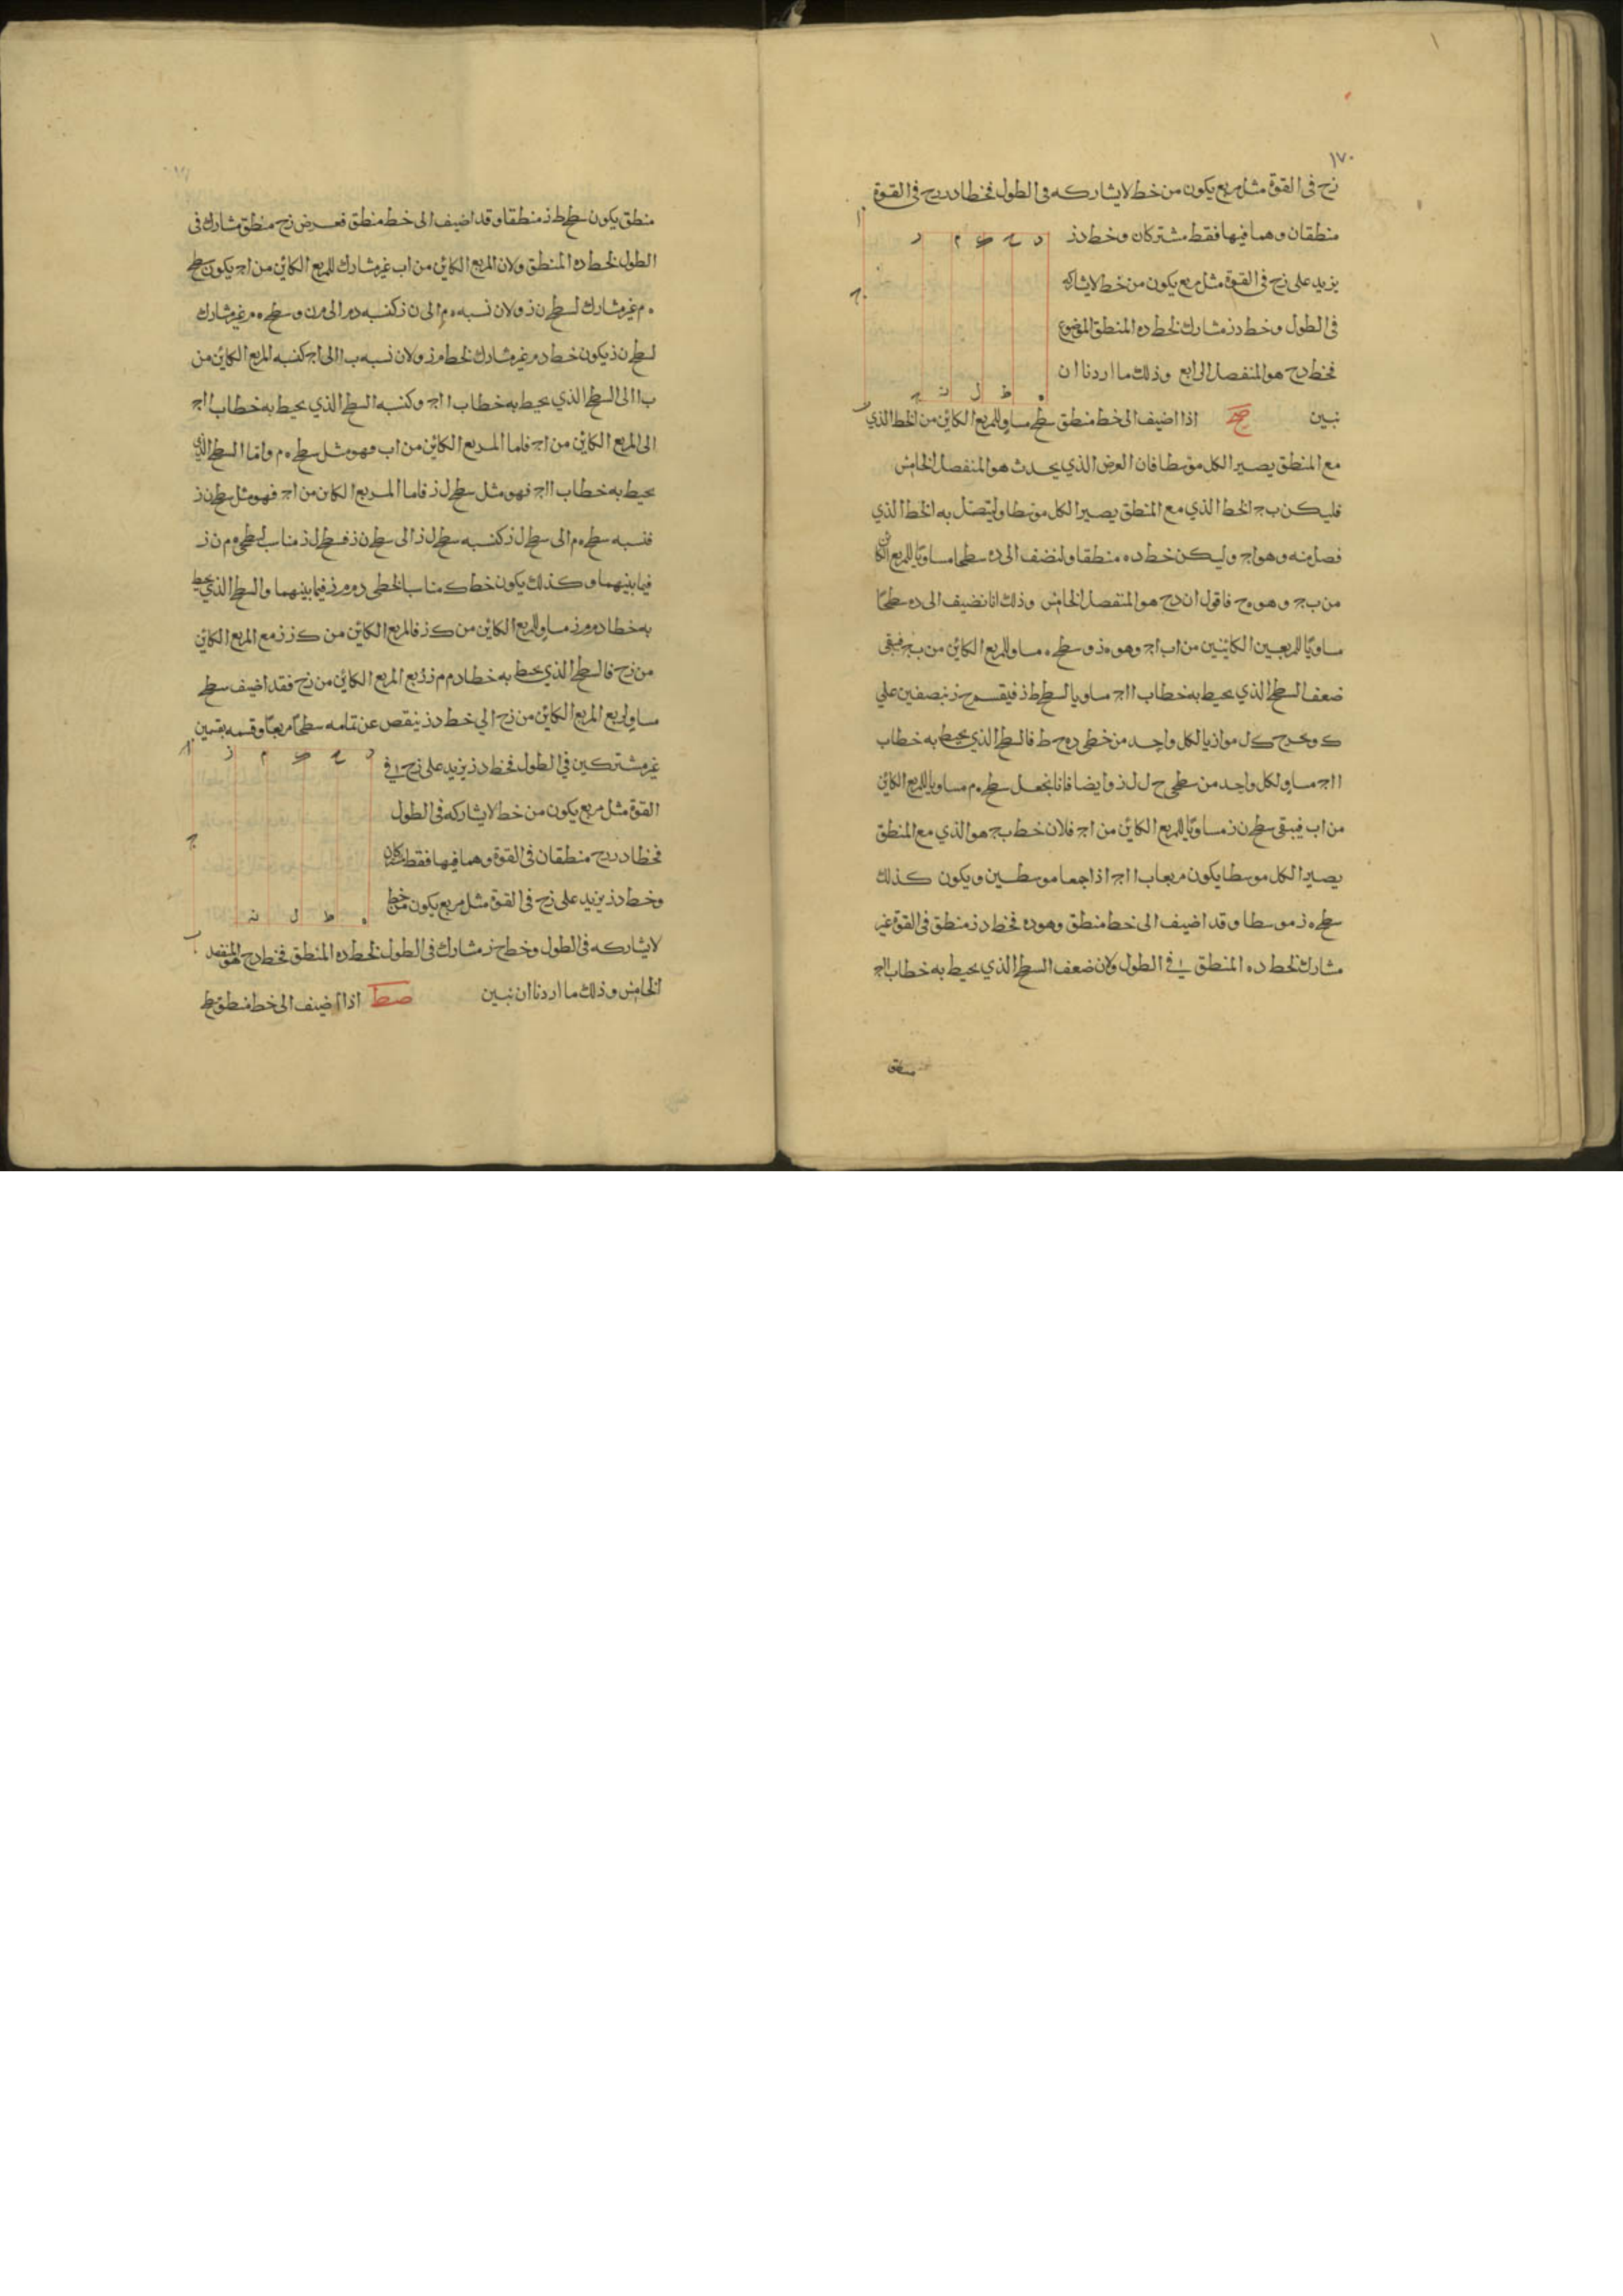 ١٧٠
زح فى القوة مثل مربع يكون من خط لا يشاركه فى الطول فخطا دز زح فى القوة
منطقان وهما فيها فقط مشتركان وخط دز
يزيد على زح فى القوة مثل مربع يكون من خط لا يشاركه
فى الطول وخط دز مشارك لخط ده المنطق الموضوع
فخط دح هو المنفصل الرابع وذلك ما اردنا ان
نبين صح اذا اضيف الى خط منطق سطح مساو للمربع الكاين من الخط الذي
مع المنطق يصير الكل موسطا فان العرض الذي يحدث هو المنفصل الخامس
فليكن ب ج الخط الذي مع المنطق يصير الكل موسطا وليتصل به الخط الذي
فصل منه وهو اج وليكن خط ده منطقا ولنضف الى ده سطحا مساويا للمربع الكاين
من ب ج وهو ه ح فاقول ان دح هو المنفصل الخامس وذلك انا نضيف الى ده سطحا
مساويا للمربعين الكاينين من اب اج وهو ه ز وسطح ه مساو للمربع الكاين من ب ج فيبقى
ضعف السطح الذي يحيط به خطا ب ا اج مساويا لسطح ط ز فيقسم ح ز بنصفين على
ك ونخرج ك ل موازيا لكل واحد من خطى ده ح ط فالسطح الذي يحيط به خطا ب
ا اج مساو لكل واحد من سطحى ح ل ل ز وايضا فانا نجعل سطح ه م مساويا للمربع الكاين
من اب فيبقى سطح ن ز مساويا للمربع الكاين من اج فلان خط ب ج هو الذي مع المنطق
يصير الكل موسطا يكون مربعا ب ا اج اذا جمعا موسطين ويكون كذلك
سطح ه ز موسطا وقد اضيف الى خط منطق وهو ده فخط دز منطق فى القوة غير
مشارك لخط ده المنطق فى الطول ولان ضعف السطح الذي يحيط به خطا ب ا اج
منطق
منطق يكون سطح ط ز منطقا وقد اضيف الى خط منطق فعرض زح منطق مشارك فى
الطول لخط ده المنطق ولان المربع الكاين من اب غير مشارك للمربع الكاين من اج يكون سطح
ه م غير مشارك لسطح ن ز ولان نسبه ه م الى ن ز كنسبه دم الى م ز وسطح ه م غير مشارك
لسطح ن ز يكون خط دم غير مشارك لخط م ز ولان نسبه ب ا الى اج كنسبه المربع الكاين من
ب ا الى السطح الذي يحيط به خطا ب ا اج وكنسبه السطح الذي يحيط به خطا ب ا اج
الى المربع الكاين من اج فاما المربع الكاين من اب فهو مثل سطح ه م واما السطح الذي
يحيط به خطا ب ا اج فهو مثل سطح ل ز فاما المربع الكاين من اج فهو مثل سطح ن ز
فنسبه سطح ه م الى سطح ل ز كنسبه سطح ل ز الى سطح ن ز فسطح ل ز مناسب لسطحى ه م ن ز
فيما بينهما وكذلك يكون خط ك مناسب لخطى دم م ز فيما بينهما والسطح الذي يحيط
به خطا دم م ز مساو للمربع الكاين من ك ز فالمربع الكاين من ك ز ربع المربع الكاين
من زح فالسطح الذي يحيط به خطا دم م ز ربع المربع الكاين من زح فقد اضيف سطح
مساو لربع المربع الكاين من زح الى خط دز ينقص عن تمامه سطحا مربعا وقسمه بقسمين
غير مشتركين فى الطول فخط دز يزيد على زح فى
القوة مثل مربع يكون من خط لا يشاركه فى الطول
فخطا دز زح منطقان فى القوة وهما فيها فقط مشتركان
وخط دز يزيد على زح فى القوة مثل مربع يكون من خط
لا يشاركه فى الطول وخط ح ز مشارك فى الطول لخط ده المنطق فخط دح هو المنفصل
الخامس وذلك ما اردنا ان نبين صط اذا اضيف الى خط منطق سطح